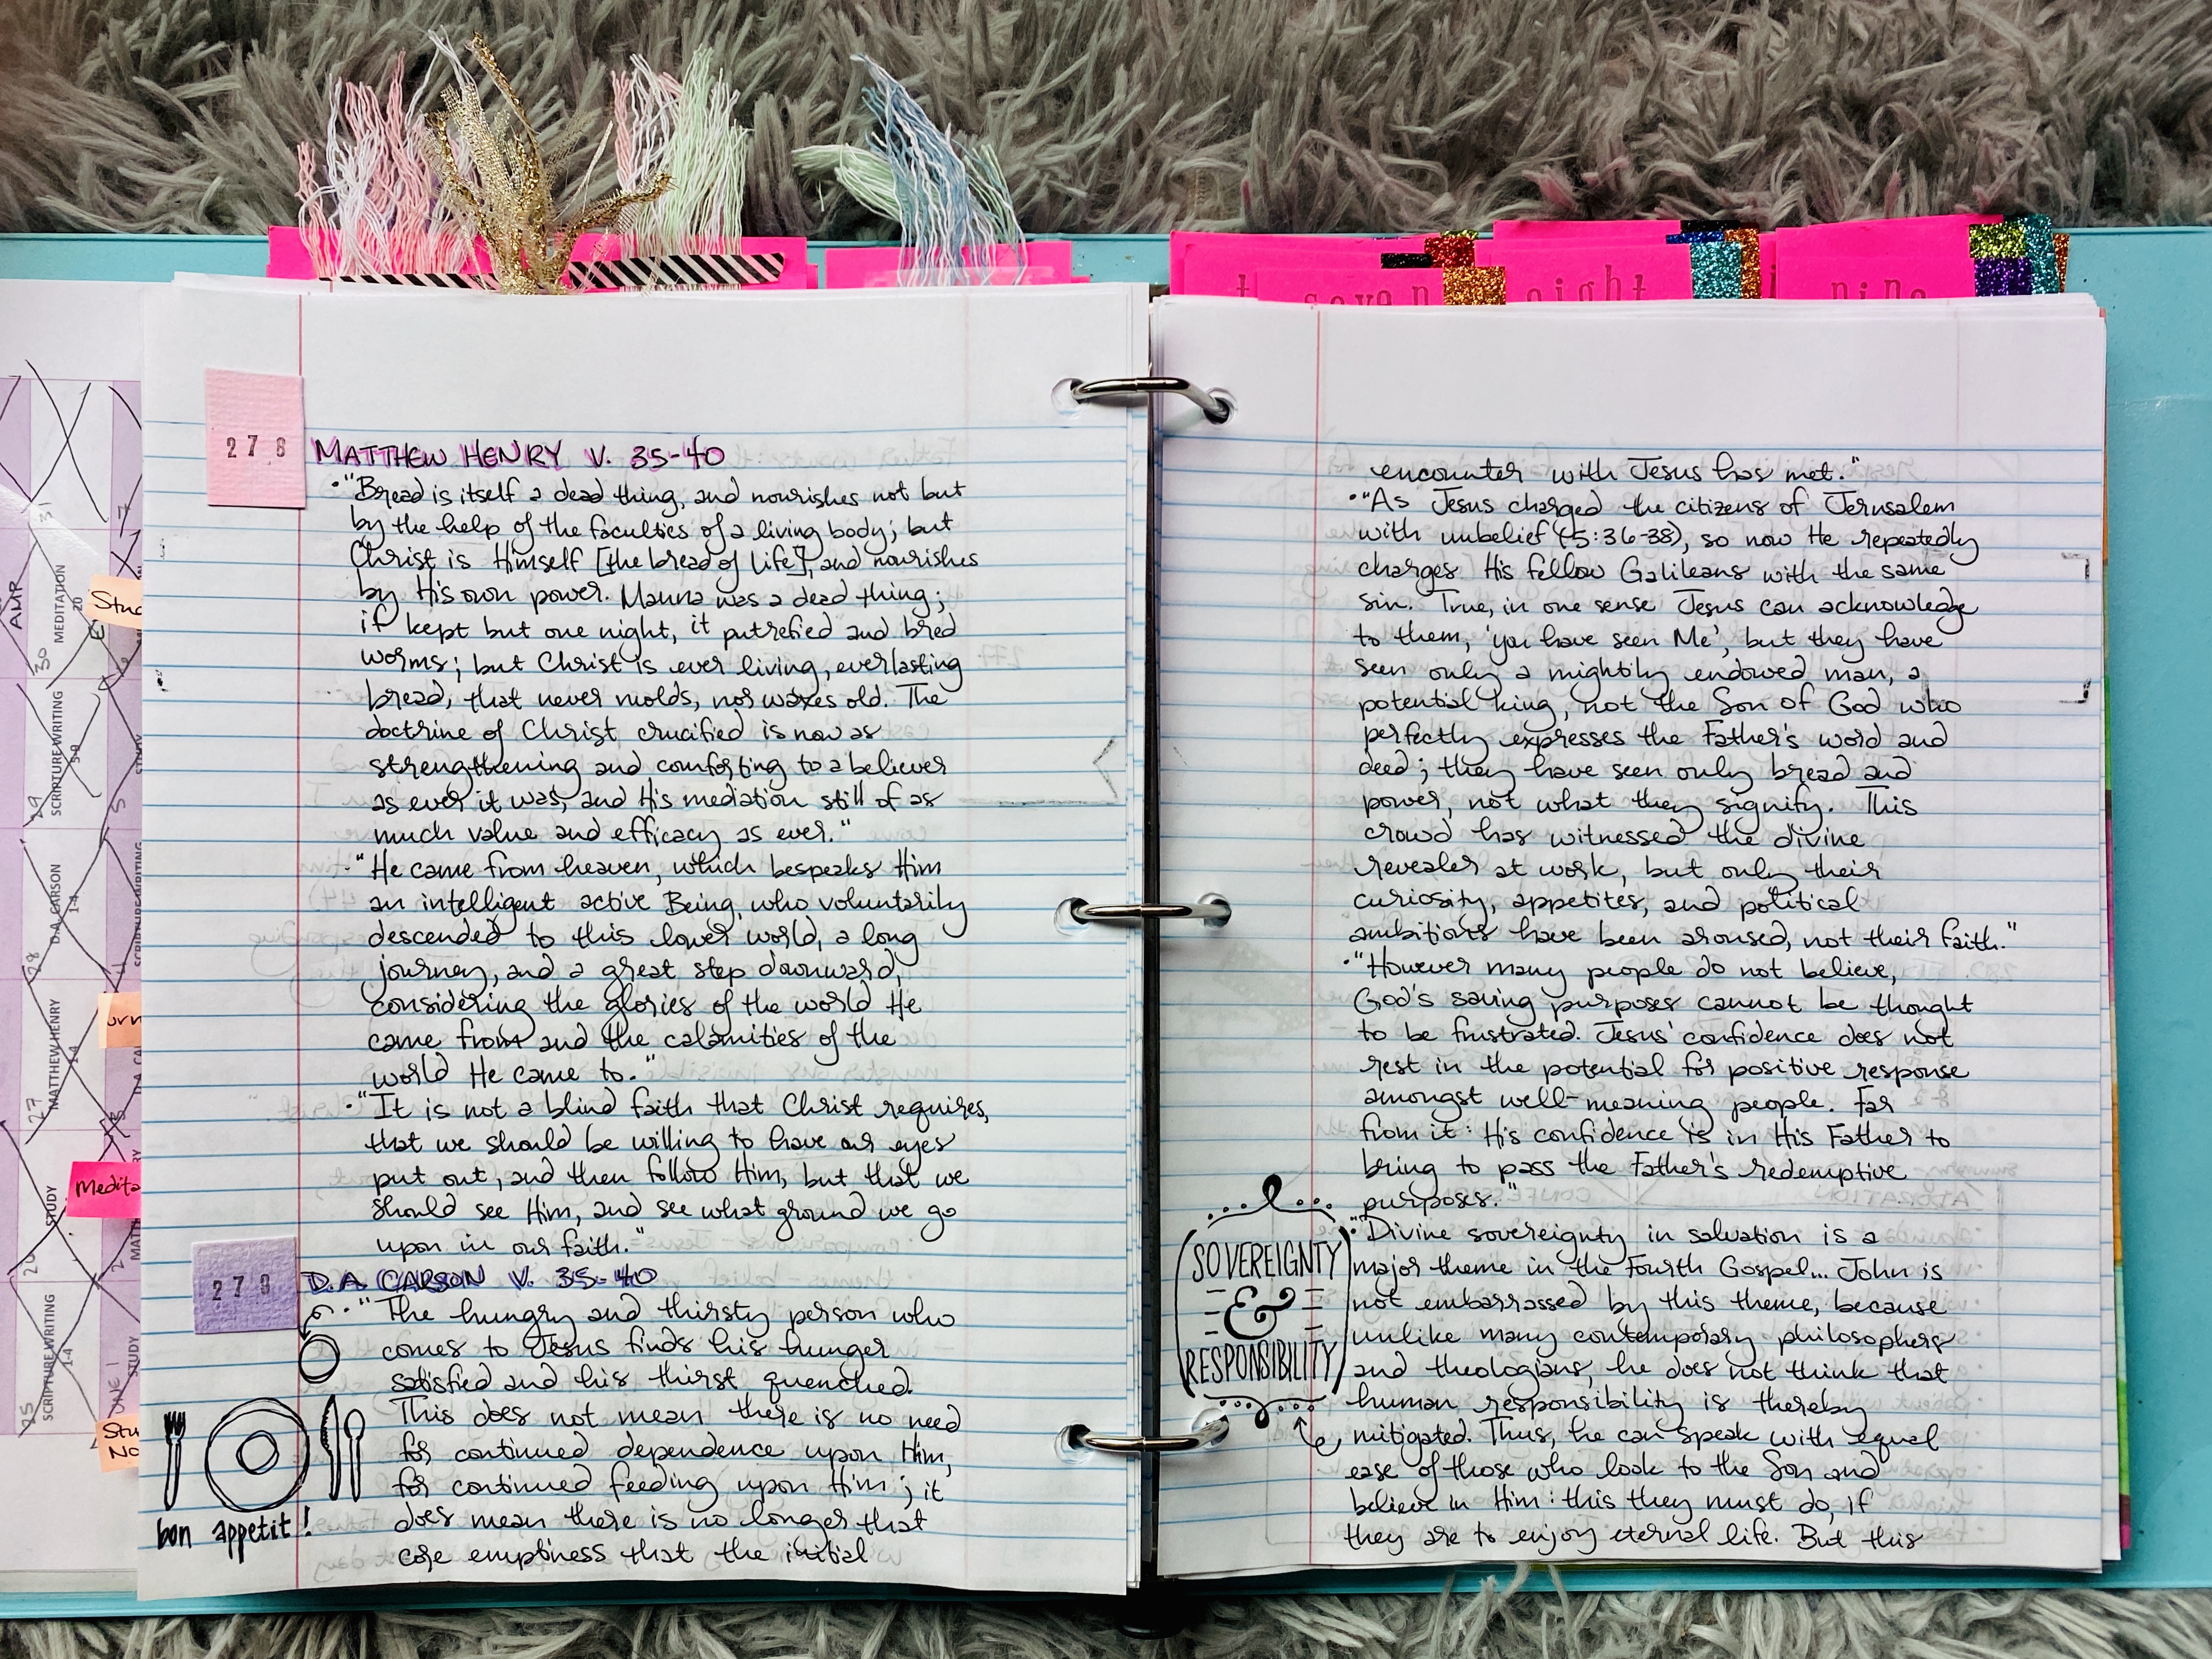 seven
eight
nine
278
MATTHEW HENRY V. 35-40
• "Bread is itself a dead thing, and nourishes not but
by the help of the faculties of a living body; but
Christ is Himself [the bread of life], and nourishes
by His own power. Manna was a dead thing;
if kept but one night, it putrefied and bred
worms; but Christ is ever living, everlasting
bread, that never molds, nor waxes old. The
doctrine of Christ crucified is now as
strengthening and comforting to a believer
as ever it was, and His mediation still of as
much value and efficacy as ever."
• "He came from heaven, which bespeaks Him
an intelligent active Being, who voluntarily
descended to this lower world, a long
journey, and a great step downward,
considering the glories of the world He
came from and the calamities of the
world He came to."
• "It is not a blind faith that Christ requires,
that we should be willing to have our eyes
put out, and then follow Him, but that we
should see Him, and see what ground we go
upon in our faith."
279
D.A. CARSON V. 35-40
• "The hungry and thirsty person who
comes to Jesus finds his hunger
satisfied and his thirst quenched.
This does not mean there is no need
for continued dependence upon Him,
for continued feeding upon Him; it
does mean there is no longer that
core emptiness that the initial
bon appetit!
encounter with Jesus has met."
• "As Jesus charged the citizens of Jerusalem
with unbelief (5:36-38), so now He repeatedly
charges His fellow Galileans with the same
sin. True, in one sense Jesus can acknowledge
to them, 'you have seen Me', but they have
seen only a mightily endowed man, a
potential king, not the Son of God who
perfectly expresses the Father's word and
deed; they have seen only bread and
power, not what they signify. This
crowd has witnessed the divine
revealer at work, but only their
curiosity, appetites, and political
ambitions have been aroused, not their faith."
• "However many people do not believe,
God's saving purposes cannot be thought
to be frustrated. Jesus' confidence does not
rest in the potential for positive response
amongst well-meaning people. Far
from it: His confidence is in His Father to
bring to pass the Father's redemptive
purposes."
• "Divine sovereignty in salvation is a
major theme in the Fourth Gospel... John is
not embarrassed by this theme, because
unlike many contemporary philosophers
and theologians, he does not think that
human responsibility is thereby
mitigated. Thus, he can speak with equal
ease of those who look to the Son and
believe in Him: this they must do, if
they are to enjoy eternal life. But this
SOVEREIGNTY
&
RESPONSIBILITY
AMP
31
30
MEDITATION
20
29
SCRIPTURE WRITING
28
D.A. CARSON
1-4
27
MATTHEW HENRY
1-4
26
STUDY
25
SCRIPTURE WRITING
1-4
JUNE 1
STUDY
Medita